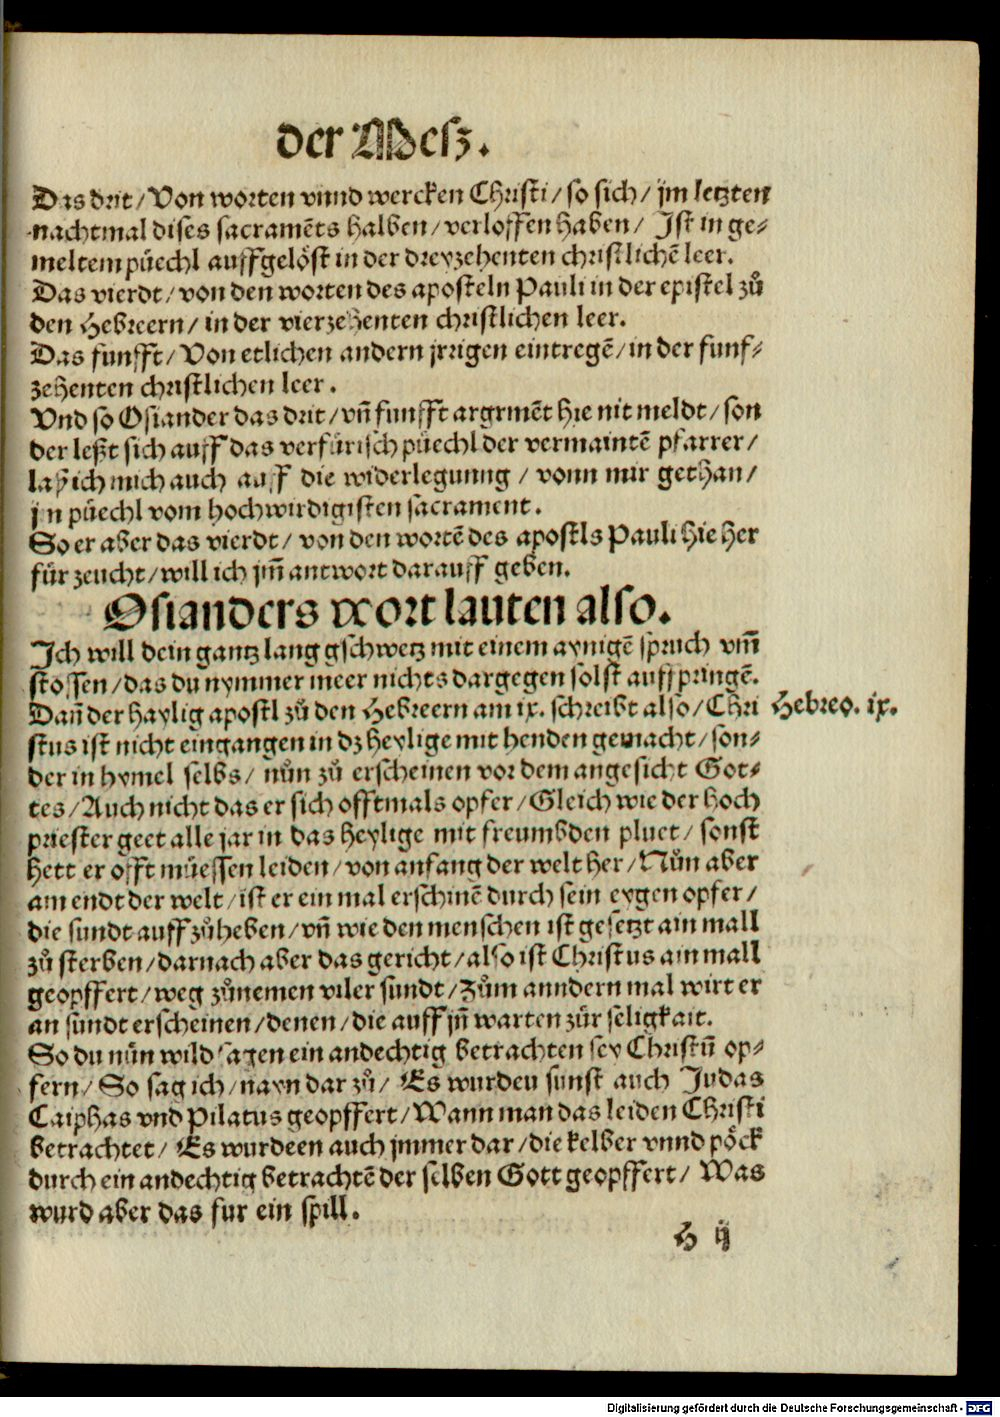 der Mesz.
Das drit/ Von worten vnnd wercken Christi/ so sich/ jm letzten
nachtmal dises sacramēts halben/ verloffen haben/ Ist in ge⸗
meltem püechl auffgelöst in der dreyzehenten christlichē leer.
Das vierdt/ von den worten des aposteln Pauli in der epistel zů
den Hebreern/ in der vierzehenten christlichen leer.
Das funfft/ Von etlichen andern jrrigen eintregē/ in der funf⸗
zehenten christlichen leer.
Vnd so Osiander das drit/ vn̄ funfft argumēt hie nit meldt/ son
der leßt sich auff das verfürisch püechl der vermaintē pfarrer/
laß ich mich auch auff die widerlegunng/ vonn mir gethan/
jn püechl vom hochwirdigisten sacrament.
So er aber das vierdt/ von den wortē des apostls Pauli hie her
für zeucht/ will ich jm̄ antwort darauff geben.
Osianders wort lauten also.
Ich will dein gantz lang gschwetz mit einem aynigē spruch vm̄
stossen/ das du nymmer meer nichts dargegen solst auffpringē.
Dan̄ der haylig apostl zů den Hebreern am ix. schreibt also/ Chri
Hebreo. ix.
stus ist nicht eingangen in dz heylige mit henden gemacht/ son⸗
der in hymel selbs/ nůn zů erscheinen vor dem angesicht Got⸗
tes/ Auch nicht das er sich offtmals opfer/ Gleich wie der hoch
priester geet alle jar in das heylige mit freumbden pluet/ sonst
hett er offt müessen leiden/ von anfang der welt her/ Nůn aber
am endt der welt/ ist er ein mal erschinē durch sein eygen opfer/
die sundt auff zůheben/ vn̄ wie den menschen ist gesetzt ain mall
zů sterben/ darnach aber das gericht/ also ist Christus ain mall
geopffert/ weg zůnemen viler sundt/ Zům anndern mal wirt er
an sundt erscheinen/ denen/ die auff jn̄ warten zůr seligkait.
So du nůn wild sagen ein andechtig betrachten sey Christū op⸗
fern/ So sag ich/ nayn dar zů/ Es wurden sunst auch Judas
Caiphas vnd Pilatus geopffert/ Wann man das leiden Christi
betrachtet/ Es wurdeen auch jmmer dar/ die kelber vnnd pöck
durch ein andechtig betrachtē der selben Gott geopffert/ Was
wurd aber das fur ein spill.
H ij
Digitalisierung gefördert durch die Deutsche Forschungsgemeinschaft - DFG